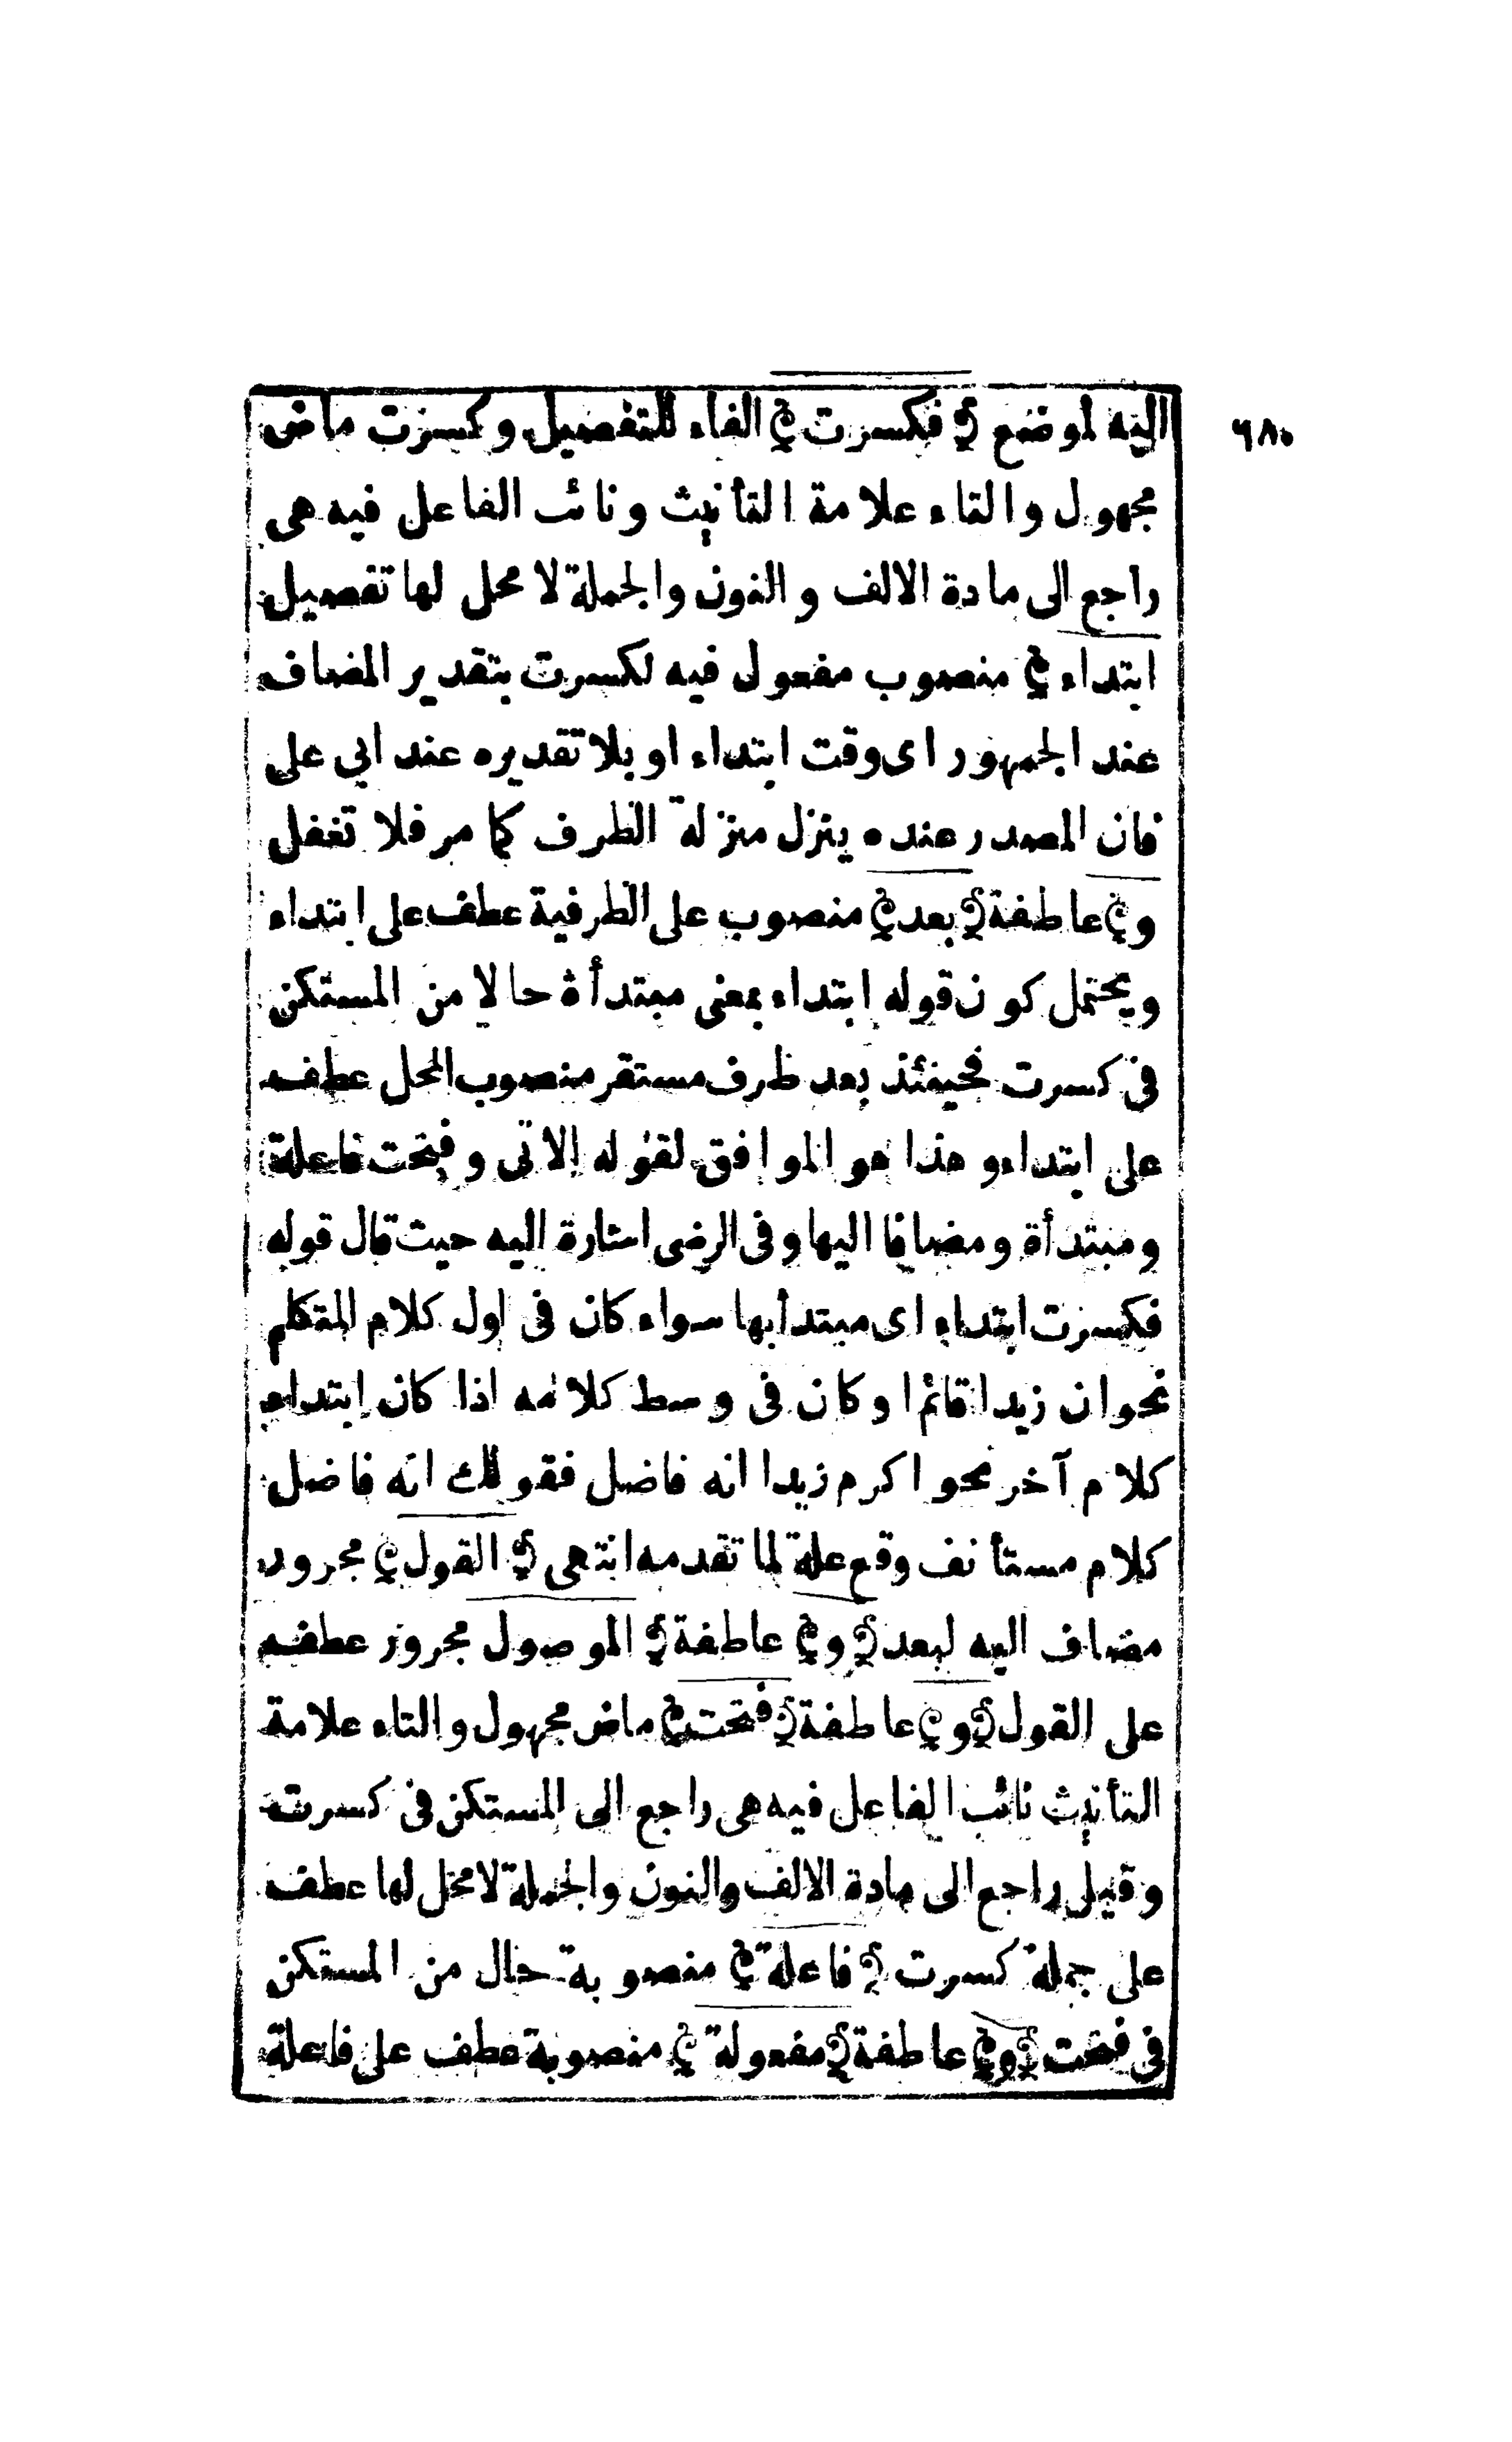 ٦٨٠
اليه لموضع ﴿ فكسرت ﴾ الفاء للتفصيل وكسرت ماض
مجهول والتاء علامة التأنيث ونائب الفاعل فيه هى
راجع الى مادة الالف والنون والجملة لا محل لها تفصيل
ابتداء ﴾ منصوب مفعول فيه لكسرت بتقدير المضاف
عند الجمهور اى وقت ابتداء او بلا تقديره عند ابى على
فان المصدر عنده ينزل منزلة الظرف كما مر فلا تغفل
و﴾ عاطفة ﴿ بعد ﴾ منصوب على الظرفية عطف على ابتداء
ويحتمل كون قوله ابتداء بمعنى مبتدأة حالا من المستكن
فى كسرت فحينئذ بعد ظرف مستقر منصوب المحل عطف
على ابتداء وهذا هو الموافق لقوله الاتى وفتحت فاعلة
ومبتدأة ومضافا اليها وفى الرضى اشارة اليه حيث قال قوله
فكسرت ابتداء اى مبتدأ بها سواء كان فى اول كلام المتكلم
نحو ان زيدا قائم او كان فى وسط كلامه اذا كان ابتداء
كلام آخر نحو اكرم زيدا انه فاضل فقولك انه فاضل
كلام مستأنف وقع علة لما تقدمه انتهى ﴿ القول ﴾ مجرور
مضاف اليه لبعد ﴿ و ﴾ عاطفة ﴿ الموصول مجرور عطف
على القول ﴿ و ﴾ عاطفة ﴿ فتحت ﴾ ماض مجهول والتاء علامة
التأنيث نائب الفاعل فيه هى راجع الى المستكن فى كسرت
وقيل راجع الى مادة الالف والنون والجملة لا محل لها عطف
على جملة كسرت ﴿ فاعلة ﴾ منصوبة حال من المستكن
فى فتحت ﴿ و ﴾ عاطفة ﴿ مفعولة ﴾ منصوبة عطف على فاعلة